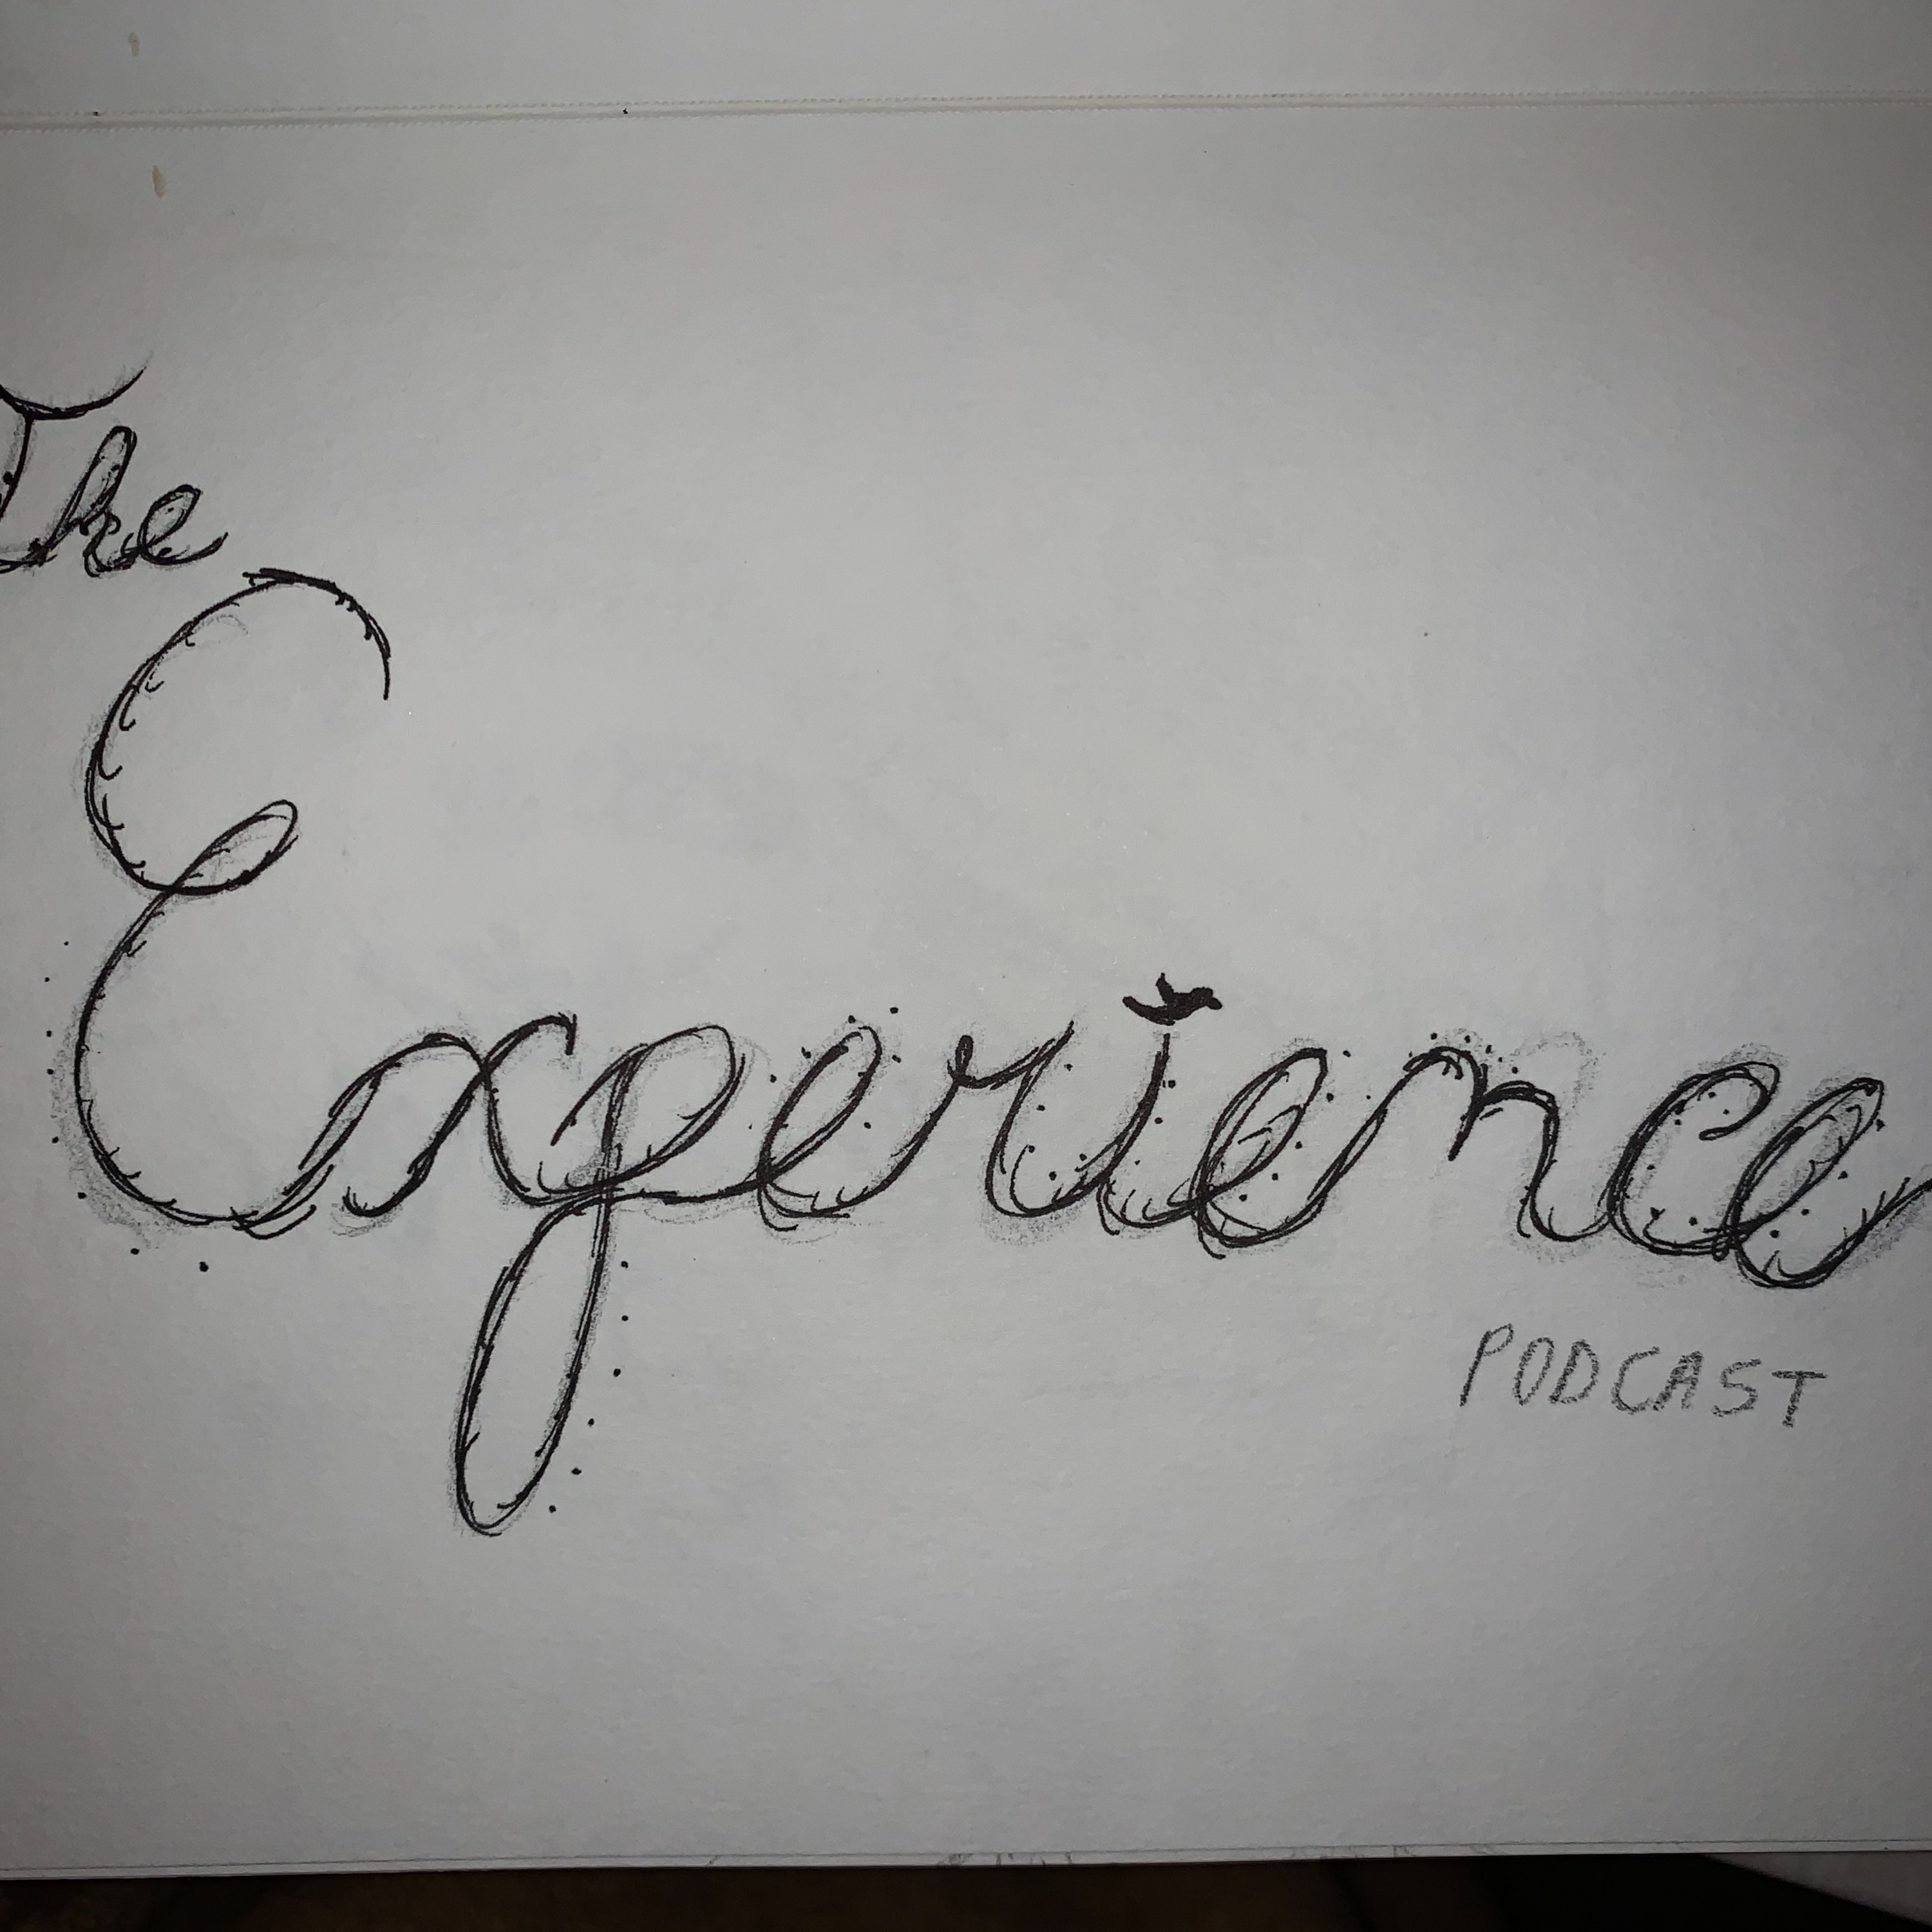 The
Experience
PODCAST